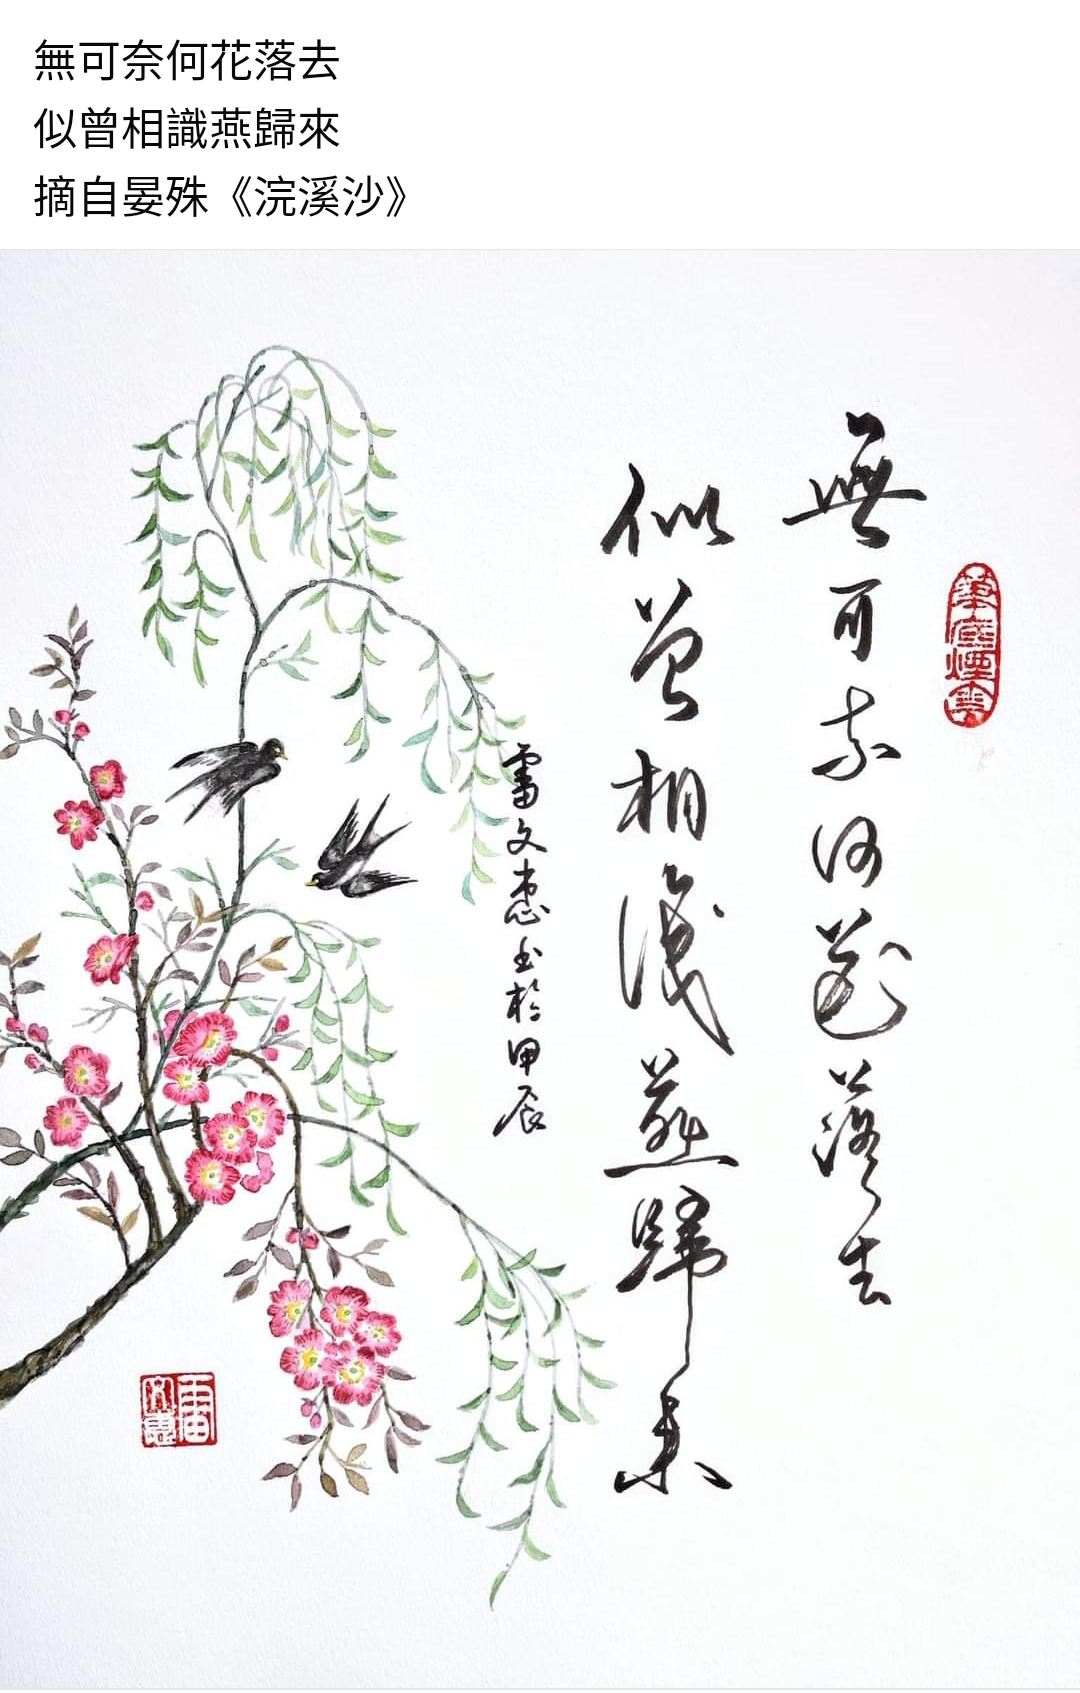 無可奈何花落去
似曾相識燕歸來
摘自晏殊《浣溪沙》
無可奈何花落去
似曾相識燕歸來
雷文惠書於甲辰
筆底煙雲
雷文惠